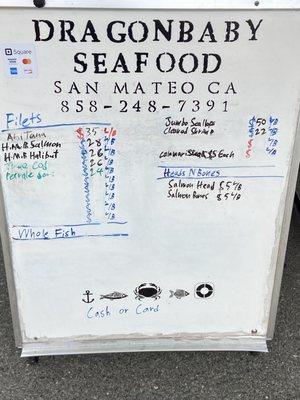 DRAGONBABY
SEAFOOD
SAN MATEO CA
858-248-7391
Square
Filets
Ahi Tuna $35 LB
H.M.B Salmon 28 LB
H.M.B Halibut 26 LB
True Cod 26 LB
Petrale 24 LB
LB
LB
LB
LB
Whole Fish
Jumbo Scallops $50 LB
Cleaned Shrimp 22 LB
$5 Each
Heads N Bones
Salmon Head $5 LB
Salmon Bones $5 LB
Cash or Card